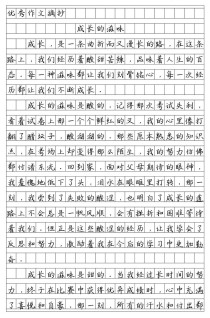 优秀作文摘抄
成长的滋味
成长，是一条曲折而又漫长的路，在这条
路上，我们经历着酸甜苦辣，品味着人生的百
态，每一种滋味都让我们刻骨铭心，每一次经
历都让我们不断成长。
成长的滋味是酸的，记得那次考试失利，
看着试卷上那一个个鲜红的叉，我的心里像打
翻了醋坛子，酸溜溜的，那些原本熟悉的知识
点，在考场上却变得那么陌生，我的努力仿佛
都付诸东流，回到家，面对父母期待的眼神，
我羞愧地低下了头，泪水在眼眶里打转，那一
刻，我尝到了失败的酸涩，也明白了成长的道
路上不会总是一帆风顺，会有挫折和困难等待
着我们，但正是这些酸涩的经历，让我学会了
反思和努力，激励着我在今后的学习中更加勤
奋。
成长的滋味是甜的，当我经过长时间的努
力，终于在比赛中获得优异成绩时，心中充满
了喜悦和自豪，那一刻，所有的汗水和付出都